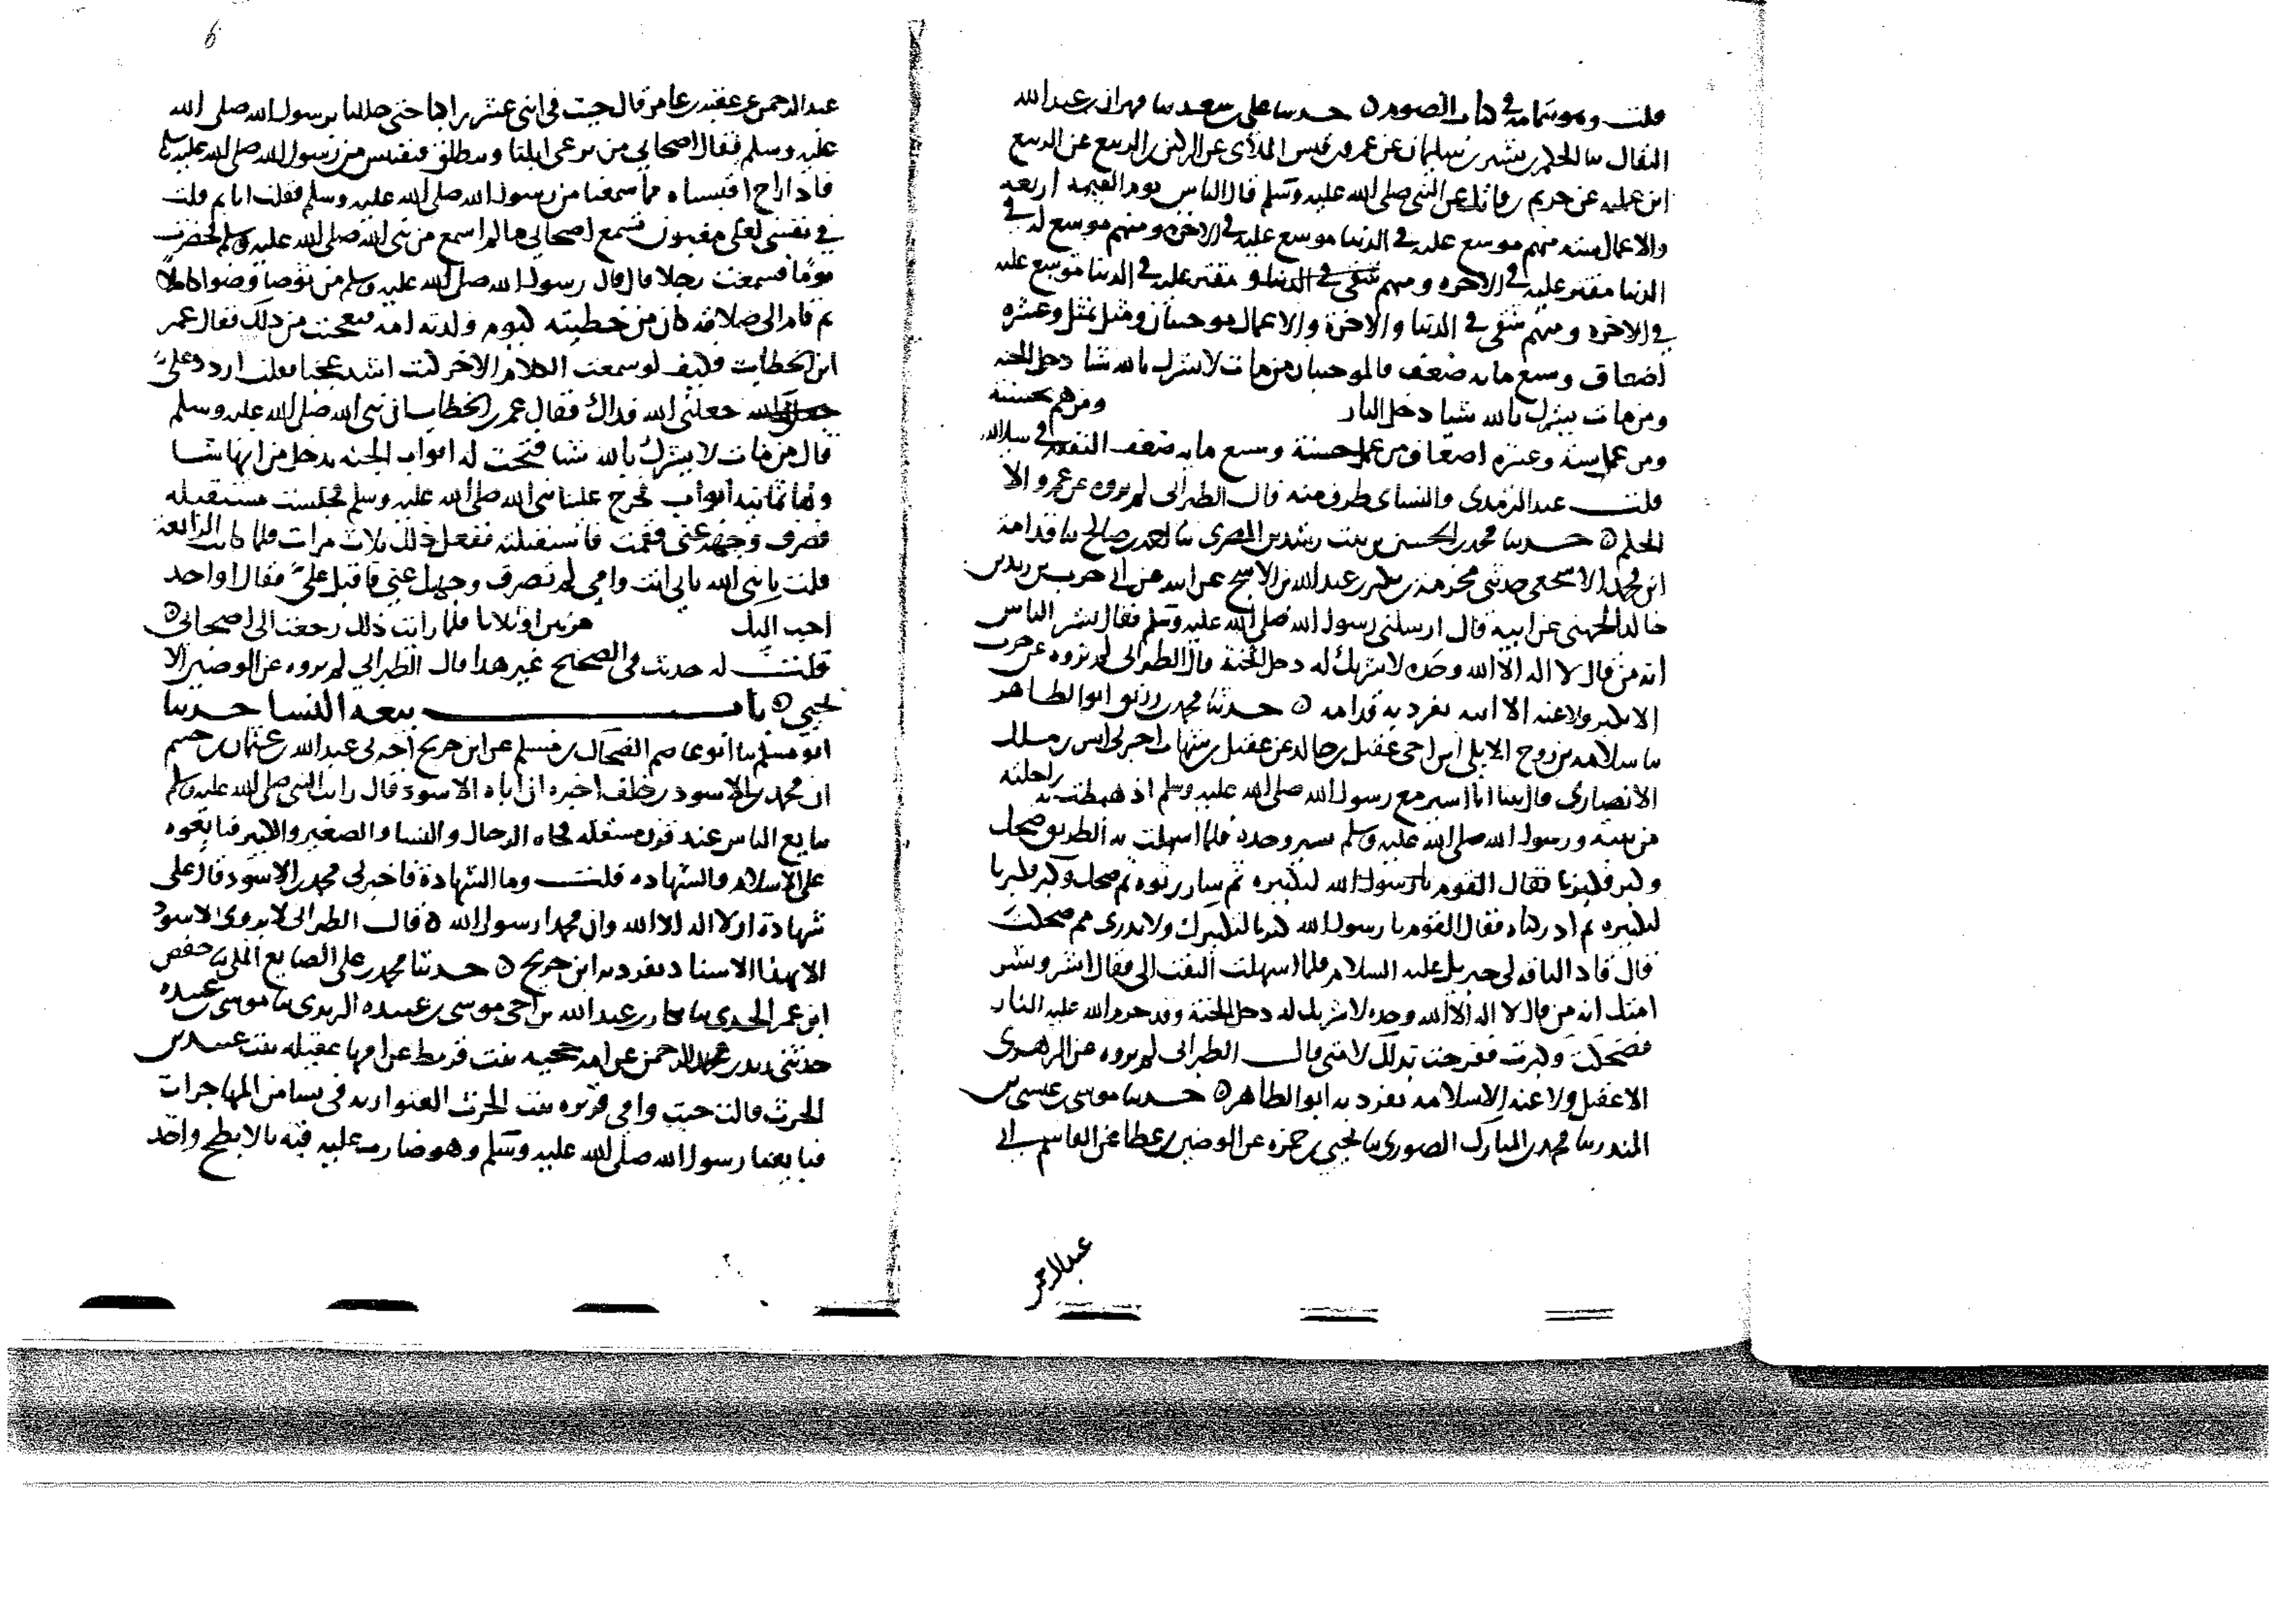 قلت وهو بتمامه في كتاب الصوم ه حدثنا علي بن سعيد ثنا مهران بن عبد الله
النقال ثنا الحكم بن بشير بن سليمان عن عمرو بن قيس الملائي عن الركين بن الربيع عن الربيع
ابن عميلة عن خريم بن فاتك عن النبي صلى الله عليه وسلم قال الناس يوم القيمة اربعة
والاعمال ستة منهم موسع عليه في الدنيا موسع عليه في الاخرة ومنهم موسع له في
الدنيا مقتر عليه في الاخرة ومنهم مقتر عليه في الدنيا موسع عليه
في الاخرة ومنهم شقي في الدنيا والاخرة والاعمال موجبتان ومثل بمثل وعشرة
اضعاف وسبع ماية ضعف فالموجبتان من مات لا يشرك بالله شيا دخل الجنة
ومن مات يشرك بالله شيا دخل النار ومن هم بحسنة
ومن عمل سية وعشرة اضعاف من عمل حسنة وسبع ماية ضعف النفقة في سبيل الله
قلت عند الترمذي والنساي طرف منه قال الطبراني لم يروه عن عمرو الا
الحكم ه حدثنا محمد بن الحسن بن بنت رشدين المصري ثنا احمد بن صالح ثنا قدامة
ابن محمد الاشجعي حدثني مخرمة بن بكير بن عبد الله بن الاشج عن ابيه عن ابي حرب بن زيد بن
خالد الجهني عن ابيه قال ارسلني رسول الله صلى الله عليه وسلم فقال بشر الناس
انه من قال لا اله الا الله وحده لا شريك له دخل الجنة قال الطبراني لم يروه عن حرب
الا بكير ولا عنه الا ابنه تفرد به قدامة ه حدثنا محمد بن رزيق ابو الطاهر
ثنا سلامة بن روح الايلي ابن اخي عقيل بن خالد عن عقيل بن شهاب اخبرني انس بن ملك
الانصاري قال بينا انا اسير مع رسول الله صلى الله عليه وسلم اذ هبطت به راحلته
من ثنية ورسول الله صلى الله عليه وسلم يسير وحده فلما اسهلت به الطريق ضحك
وكبر فكبرنا فقال القوم يا رسول الله لتكبيره ثم سار رتوة ثم ضحك وكبر فكبرنا
لتكبيره ثم ادركناه فقال القوم يا رسول الله كبرنا لتكبيرك ولا ندري مم ضحكت
قال قاد الناقة لي جبريل عليه السلام فلما اسهلت التفت الي فقال ابشر وبشر
امتك انه من قال لا اله الا الله وحده لا شريك له دخل الجنة وقد حرم الله عليه النار
فضحكت وكبرت ففرحت بذلك لامتي قال الطبراني لم يروه عن الزهري
الا عقيل ولا عنه الا سلامة تفرد به ابو الطاهر ه حدثنا موسى بن عيسى بن
المنذر ثنا محمد بن المبارك الصوري ثنا يحيى بن حمزة عن الوضين بن عطا عن القاسم ابي
عبد الرحمن
6
عبد الرحمن عن عقبة بن عامر قال جيت في اثني عشر راكبا حتى حللنا برسول الله صلى الله
عليه وسلم فقال اصحابي من يرعى ابلنا وننطلق فنقتبس من رسول الله صلى الله عليه وسلم
فاذا راح اقتبسناه مما سمعنا من رسول الله صلى الله عليه وسلم فقلت انا ثم قلت
في نفسي لعلي مغبون يسمع اصحابي ما لم اسمع من نبي الله صلى الله عليه وسلم فحضرت
يوما فسمعت رجلا قال قال رسول الله صلى الله عليه وسلم من توضا وضوا كاملا
ثم قام الى صلاته كان من خطيته كيوم ولدته امه فتعجبت من ذلك فقال عمر
ابن الخطاب فكيف لو سمعت الكلام الاخر كنت اشد عجبا فقلت اردد علي
جعلني الله فداك فقال عمر بن الخطاب ان نبي الله صلى الله عليه وسلم
قال من مات لا يشرك بالله شيا فتحت له ابواب الجنة يدخل من ايها شا
ولها ثمانية ابواب فخرج علينا نبي الله صلى الله عليه وسلم فجلست مستقبله
فصرف وجهه عني فقمت فاستقبلته ففعل ذلك ثلاث مرات فلما كانت الرابعة
قلت يا نبي الله بابي انت وامي لم تصرف وجهك عني فاقبل علي فقال اواحد
احب اليك مرتين او ثلاثا فلما رايت ذلك رجعت الى اصحابي ه
قلت له حديث في الصحيح غير هذا قال الطبراني لم يروه عن الوضين الا
يحيى ه باب بيعة النسا حدثنا
ابو مسلم ثنا ابو عاصم الضحاك بن مسلم عن ابن جريج اخبرني عبد الله بن عثمان بن خثيم
ان محمد بن الاسود بن خلف اخبره ان اباه الاسود قال رايت النبي صلى الله عليه وسلم
يبايع الناس عند قرن مسقلة فجاه الرجال والنسا والصغير والكبير فبايعوه
على الاسلام والشهادة قلت وما الشهادة فاخبرني محمد بن الاسود قال على
شهادة ان لا اله الا الله وان محمدا رسول الله ه قال الطبراني لا يروى عن الاسود
الا بهذا الاسناد تفرد به ابن جريج ه حدثنا محمد بن علي الصايغ المكي ثنا حفص
ابن عمر الجدي ثنا بكار بن عبد الله بن اخي موسى بن عبيدة الربذي ثنا موسى بن عبيدة
حدثني زيد بن عبد الرحمن عن امه حجية بنت قريط عن امها عقيلة بنت عبيد بن
الحرث قالت جيت وامي قريرة بنت الحرث العتوارية في نسا من المهاجرات
فبايعنا رسول الله صلى الله عليه وسلم وهو ضارب عليه قبة بالابطح واخذ